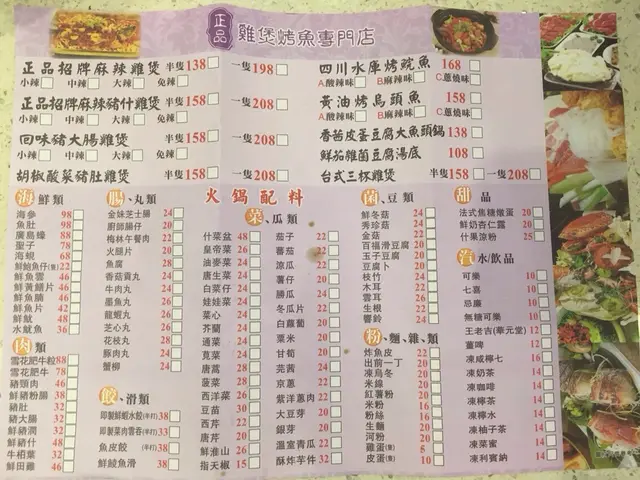 正品 雞煲烤魚專門店
正品招牌麻辣雞煲 半隻138 一隻198
小辣 中辣 大辣 免辣
正品招牌麻辣豬什雞煲 半隻158 一隻208
小辣 中辣 大辣 免辣
回味豬大腸雞煲 半隻158 一隻208
小辣 中辣 大辣 免辣
胡椒酸菜豬肚雞煲 半隻158 一隻208
四川水庫烤鯇魚 168
A酸辣味 B麻辣味 C蔥燒味
黃油烤烏頭魚 158
A酸辣味 B麻辣味 C蔥燒味
香茜皮蛋豆腐大魚頭鍋 138
鮮茄雜菌豆腐湯底 108
台式三杯雞煲 半隻158 一隻208
火鍋配料
海鮮類
海參 98
魚肚 98
廣島蠔 88
聖子 78
海蜆 68
鮮鮑魚仔(隻) 22
鮮魚雲 46
鮮黃鱔片 46
鮮魚腩 46
鮮魚片 42
鮮魷 48
水魷魚 36
肉類
雪花肥牛粒 88
雪花肥牛 78
豬頸肉 46
鮮豬粉腸 38
豬肚 32
豬大腸 32
鮮豬潤 32
鮮豬什 48
牛栢葉 32
鮮田雞 46
腸、丸類
金妹芝士腸 24
廚師腸仔 20
梅林午餐肉 22
火腿片 20
魚腐 28
香菇貢丸 24
牛肉丸 24
墨魚丸 26
龍蝦丸 26
芝心丸 26
花枝丸 28
豚肉丸 24
蟹柳 24
餃、滑類
即製鮮蝦水餃(半打) 38
即製菜肉雲吞(半打) 33
魚皮餃 (半打) 38
鮮鯪魚滑 38
菜、瓜類
什菜盆 48
皇帝菜 26
油麥菜 24
唐生菜 24
白菜仔 24
娃娃菜 24
菜心 24
芥蘭 24
通菜 24
莧菜 24
唐蒿 28
菠菜 28
西洋菜 26
豆苗 30
西芹 22
唐芹 20
鮮淮山 26
指天椒 15
茄子 22
蕃茄 22
涼瓜 22
薯仔 20
勝瓜 24
冬瓜片 22
白蘿蔔 20
粟米 20
甘筍 20
芫茜 24
京蔥 22
紫洋蔥肉 22
大豆芽 20
銀芽 20
溫室青瓜 22
酥炸芋件 32
菌、豆類
鮮冬菇 24
秀珍菇 24
金菇 22
百福滑豆腐 20
玉子豆腐 20
豆腐卜 20
枝竹 24
木耳 22
雲耳 26
生根 22
響鈴 24
粉、麵、雜類
炸魚皮 22
出前一丁 20
凍烏冬 20
米線 20
紅薯粉 20
米粉 16
粉絲 16
生麵 20
河粉 20
雞蛋(隻) 5
皮蛋(隻) 10
甜品
法式焦糖燉蛋 20
鮮奶杏仁露 20
什果涼粉 25
汽水/飲品
可樂 10
七喜 10
忌廉 10
無糖可樂 10
王老吉(華元堂) 12
薑啤 12
凍咸檸七 16
凍奶茶 14
凍咖啡 14
凍檸茶 14
凍檸水 14
凍柚子茶 14
凍菜蜜 14
凍利賓納 14